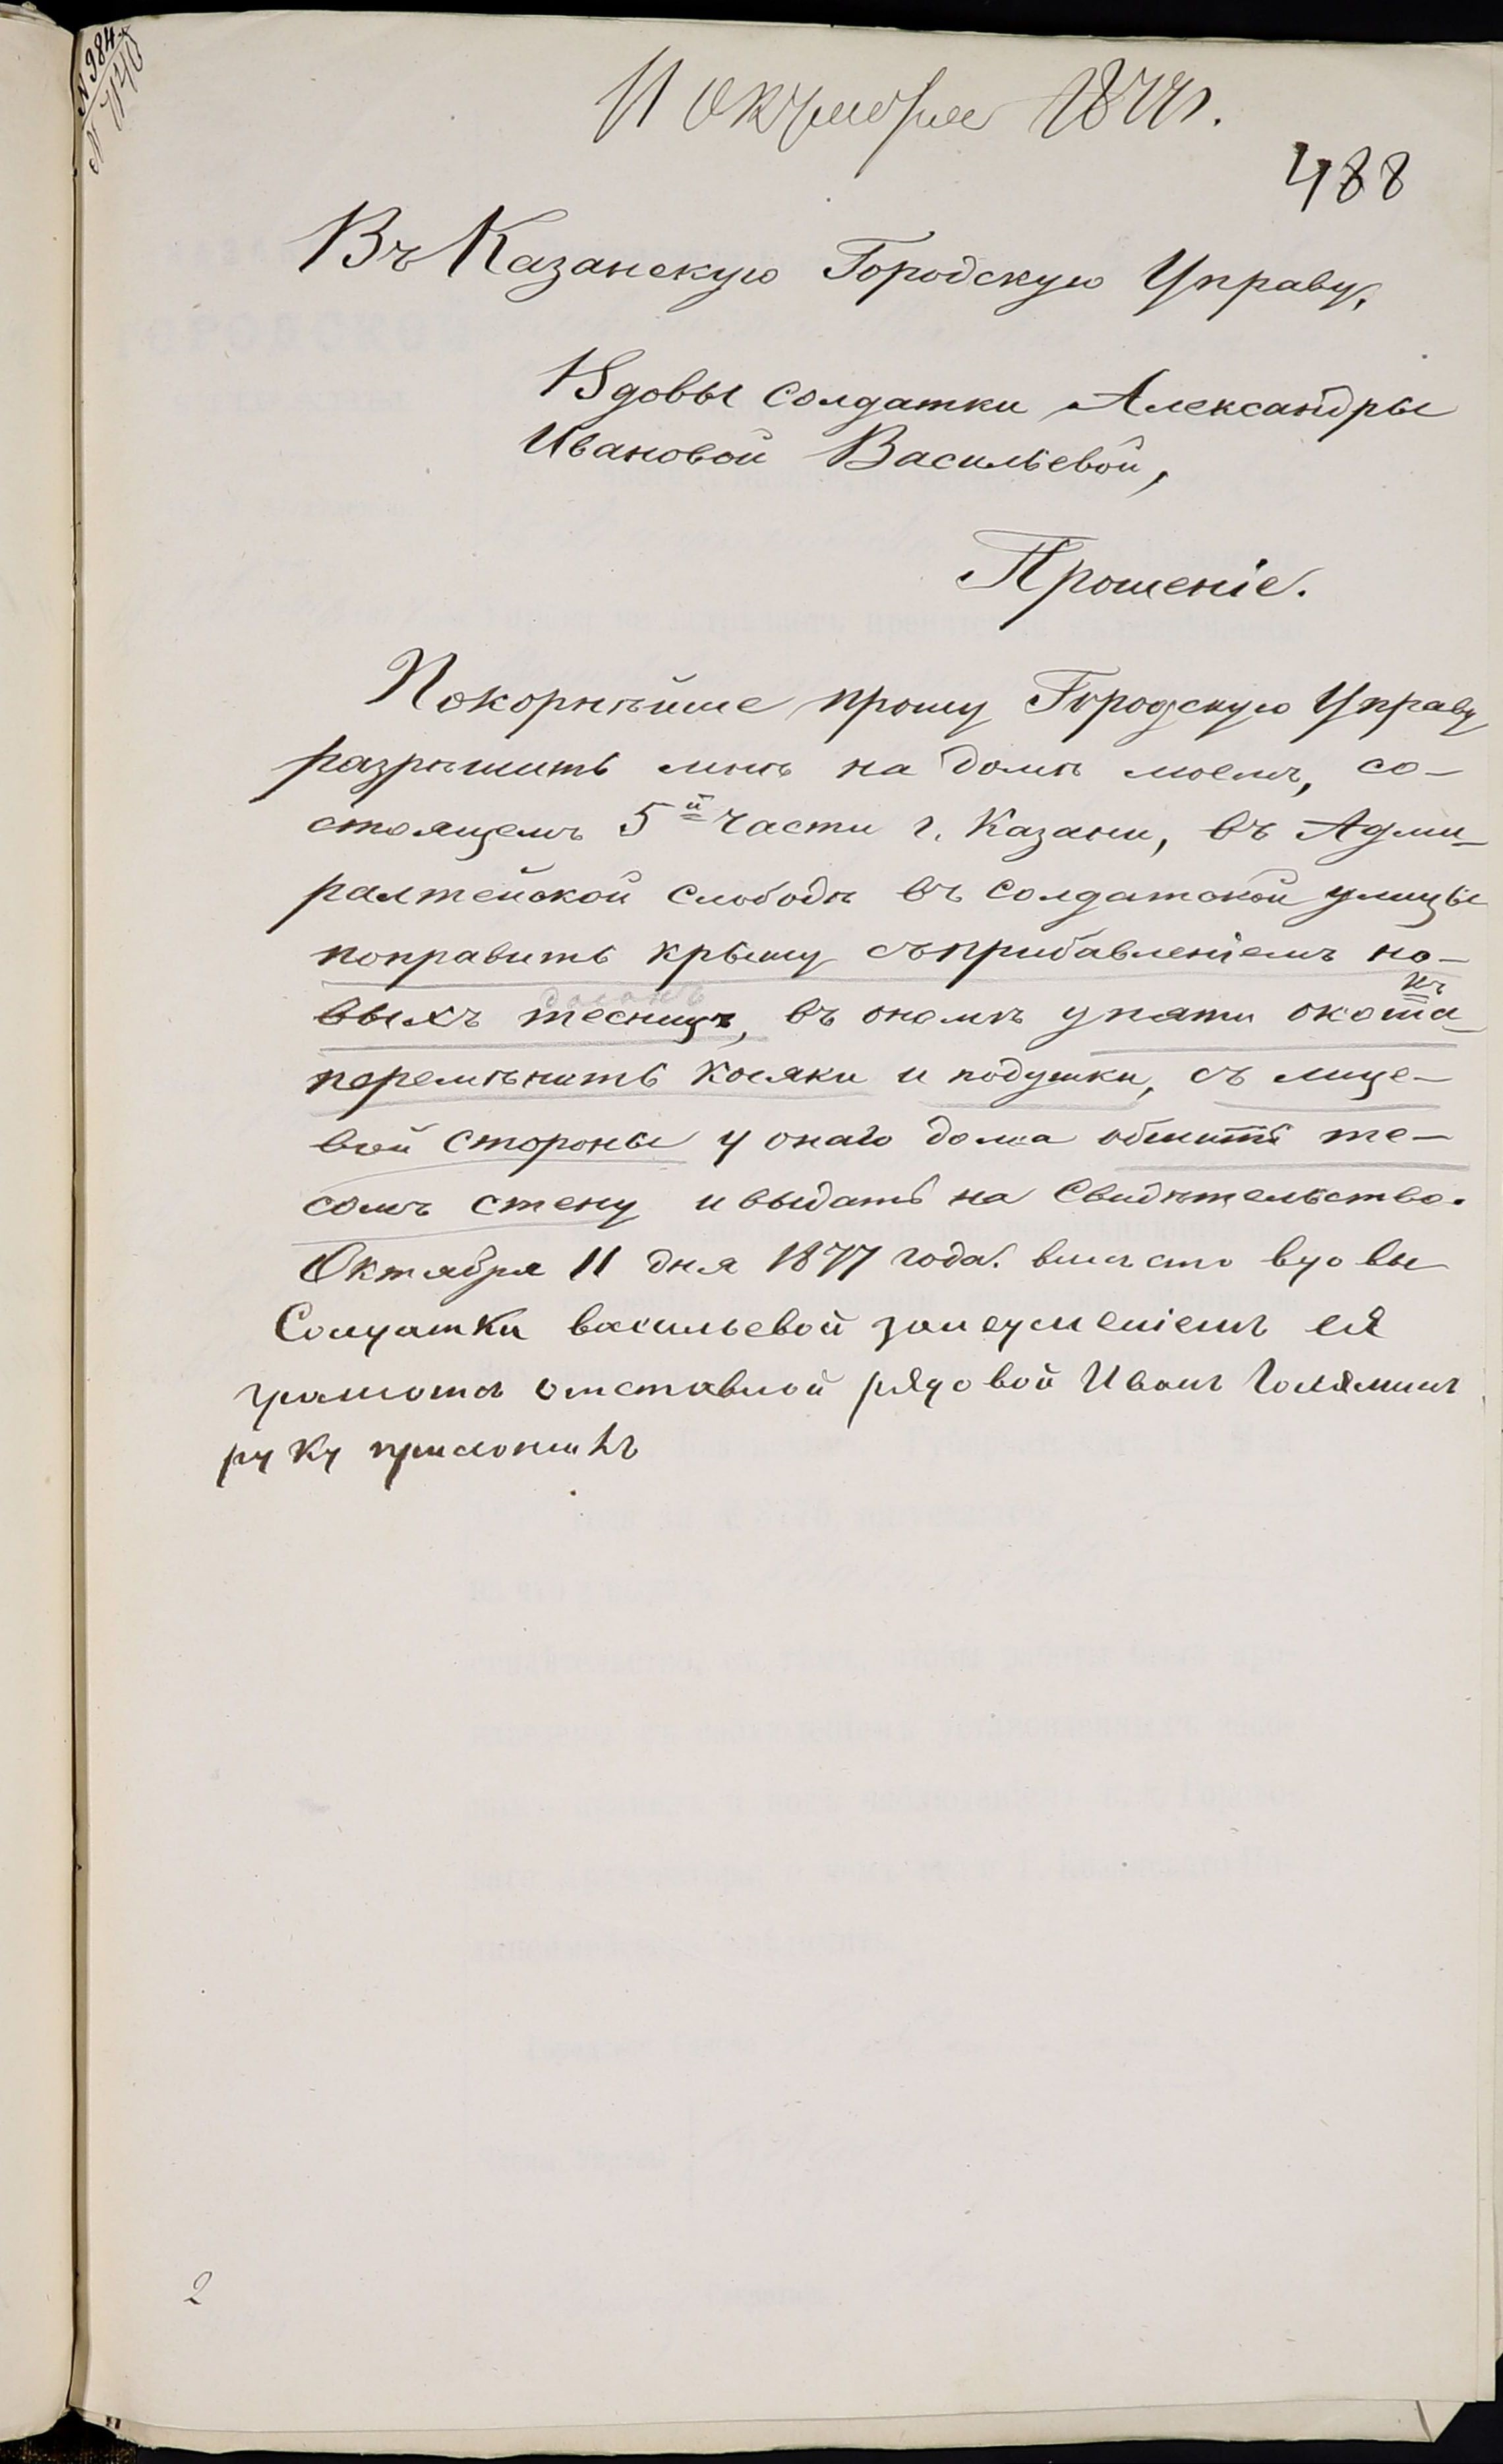 № 984
№ 7140
11 Октября 1877 г.
488
Въ Казанскую Городскую Управу,
Вдовы солдатки Александры
Ивановой Васильевой,
Прошеніе.
Покорнѣйше прошу Городскую Управу
разрѣшить мнѣ на домѣ моемъ, со-
стоящемъ 5й части г. Казани, въ Адми-
ралтейской слободѣ въ солдатской улицы
поправить крышу съ прибавленіемъ но-
выхъ тесницъ, въ ономъ у пяти окошка
перемѣнить косяки и подушки, съ лице-
вой стороны у онаго дома обшить те-
сомъ стену и выдать на Свидѣтельство.
Октября 11 дня 1877 года. вместо вдовы
Солдатки васильевой занеумениемъ ея
грамоты отставной рядовой Иванъ
руку приложилъ
2